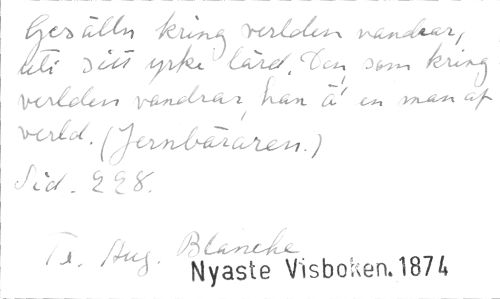 Gesälln kring verlden vandrar,
uti sitt yrke lärd. Den, som kring
verlden vandrar, han ä' en man af
verld. (Jernbäraren.)
Sid. 228.
Te. Aug. Blanche
Nyaste Visboken. 1874